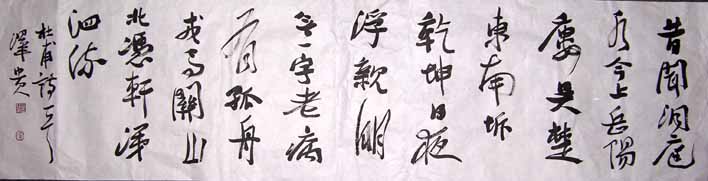 昔聞洞庭
水今上岳陽
樓吳楚
東南坼
乾坤日夜
浮親朋
無一字老病
有孤舟
戎馬關山
北憑軒涕
泗流
杜甫詩一首